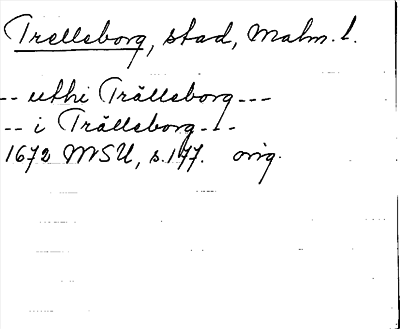 Trelleborg, stad, Malm. l.
-- uthi Trälleborg ---
-- i Trälleborg ---
1672 MSU, s. 177. orig.